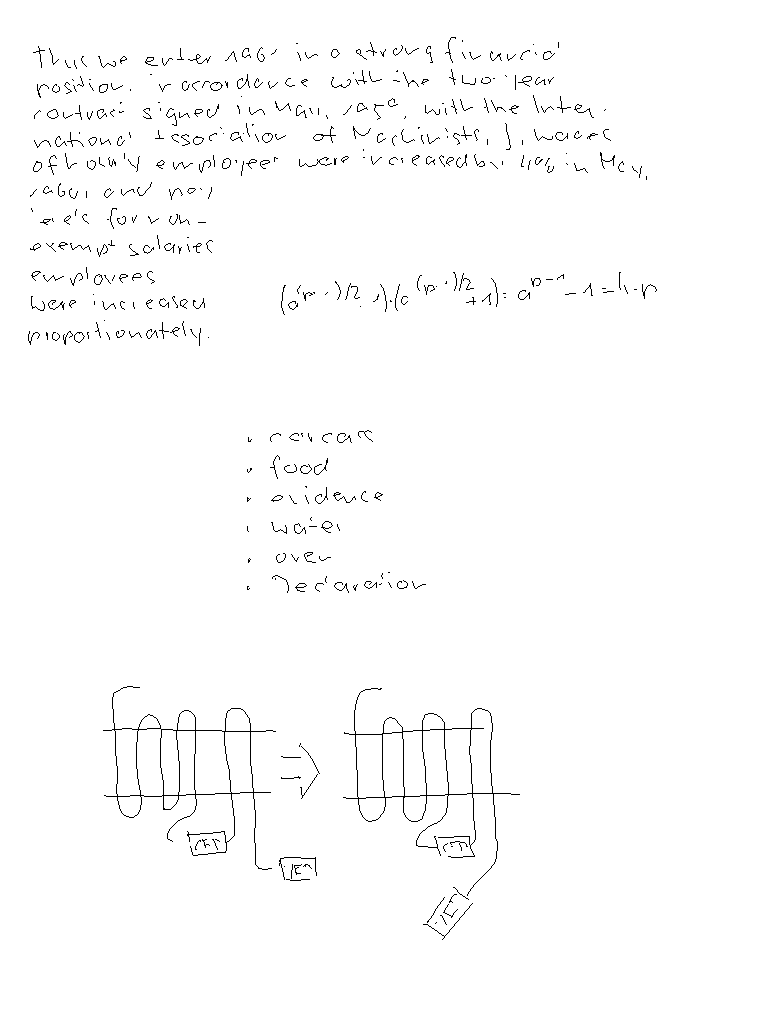 Thus we enter 1961 in a strong financial
position. in accordance with the two-year
contract signed in May, 1959, with the Inter-
national Association of Machinists, wages
of hourly employees were increased by 4% in May,
1960, and pay
levels for non-
exempt salaries
employees
were increased
proportionately.
(a^{(p-1)/2} - 1)·(a^{(p-1)/2} + 1) = a^{p-1} - 1 = h·p
• carcass
• food
• evidence
• water
• over
• Declaration
CFP